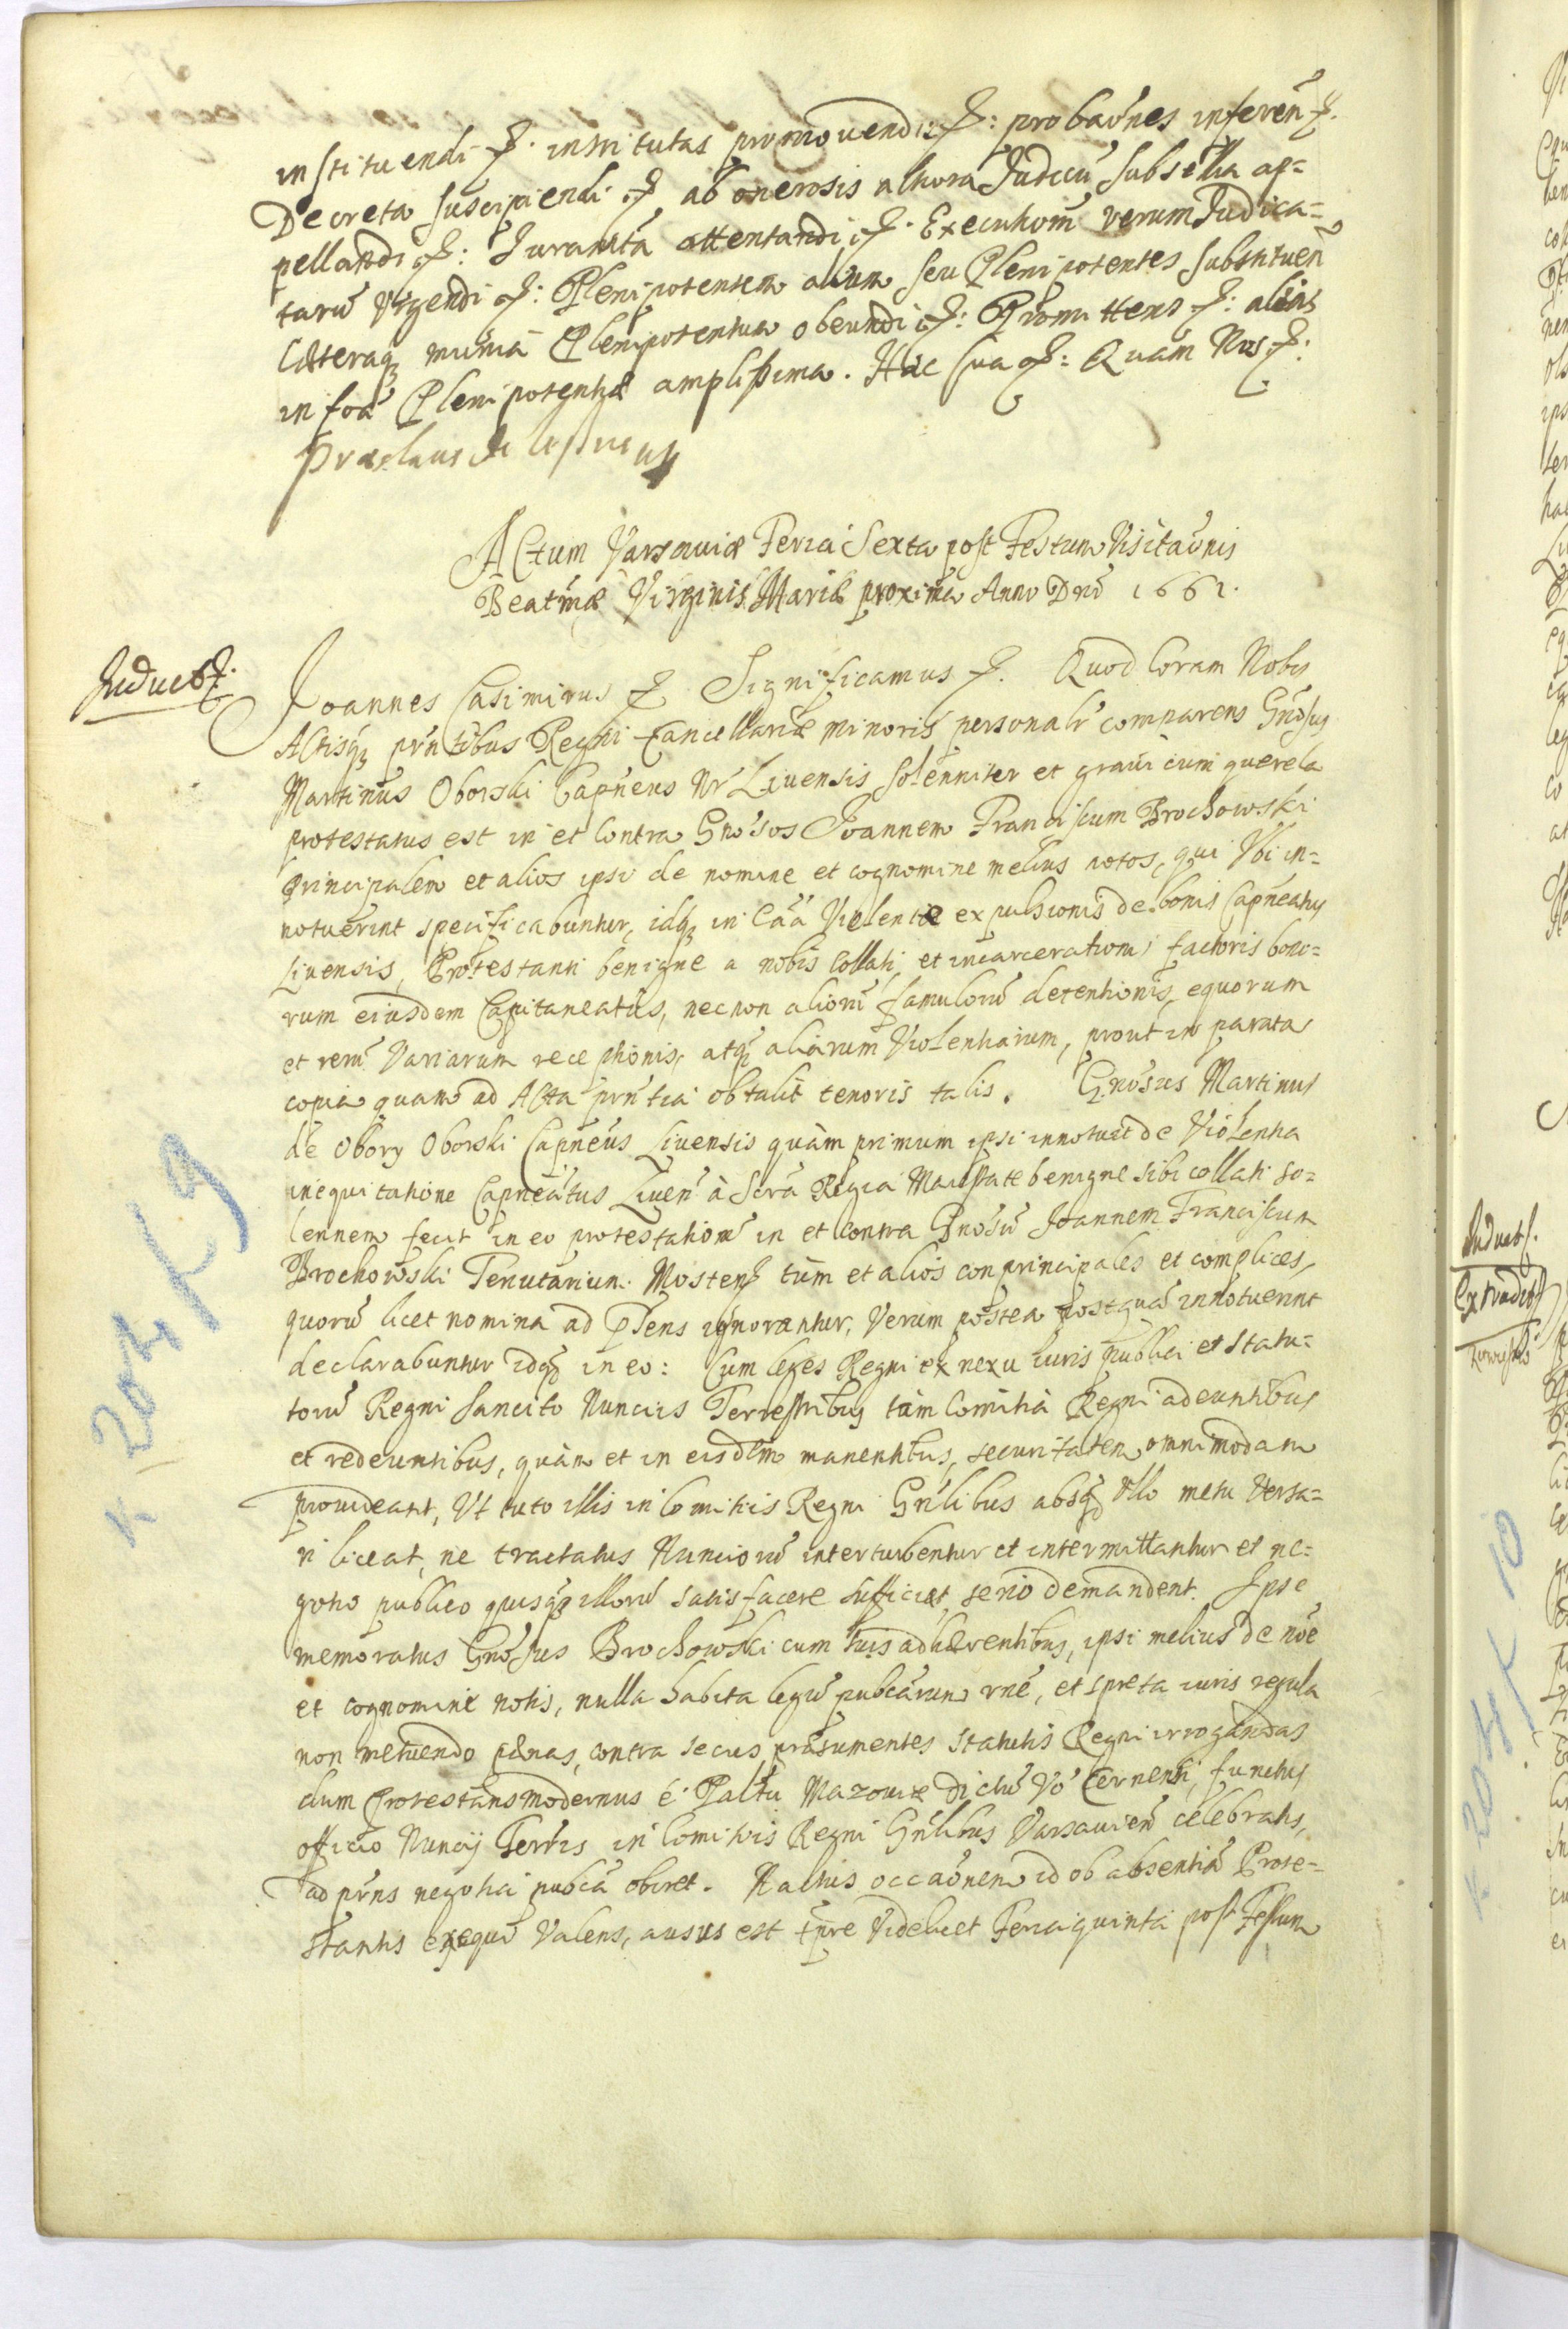 instituendi &. institutas promovendi &: probaōnes inferen̄ &.
Decreta suscipiendi & ab onerosis altiora Judicū subsellia ap=
pellandi &: Juramta attentandi &. Executiom̄ rerum Judica=
tarū Urgendi &: Plenipotentem alium seu Plenipotentes substituen̄
Cæteraq munia Plenipotentiæ obeundi &: Promittens &:
in foā Plenipotentiæ amplissima. Hac sua &: Quam Nos &:
Actum Varsaviæ Feria Sexta post Festum Visitaōnis
Beatmæ Virginis Mariæ proxima Anno Dni 1661.
Induct &.
Joannes Casimirus & Significamus &. Quod Coram Nobis
Actisq prntibus Regni Cancellariæ Minoris personalr comparens Gnosus
Martinus Oborski Capneus Nr Livensis solenniter et gravi cum querela
protestatus est in et contra Gnosos Joannem Franciscum Brochowski
Principalem et alios ipsi de nomine et cognomine melius notos, qui Ubi in=
notuerint specificabuntur, idq in Caā Violentæ expulsionis de bonis Capneatus
Livensis, Protestanti benigne a nobis collati, et incarcerationis factoris bono=
rum eiusdem Capitaneatus, necnon aliorū famulorū detentionis, equorum
et rerū Variarum receptionis, atq aliarum Violentiarum, prout in parata
copia quam ad Acta prntia obtulit tenoris talis. Gnosus Martinus
de Obory Oborski Capneus Livensis quàm primum ipsi innotuit de Violenta
inequitatione Capneatus Liven̄ à Scra Regia Maiestate benigne sibi collati so=
lennem fecit in eo protestatiom̄ in et contra Gnosū Joannem Franciscum
Brochowski Tenutarium Mosten̄ tùm et alios conprincipales et complices,
quorū licet nomina ad pñens ignorantur, Verum postea postquā innotuerint
declarabuntur idq in eo: Cum leges Regni ex nexu iuris publici et Statu=
torū Regni sancito Nunciis Terrestribus tàm Comitia Regni adeuntibus
et redeuntibus, quàm et in eisdem manentibus, securitatem omnimodam
provideant, Ut tuto illis in Comitiis Regni Gnlibus absq Ullo metu Versa=
ri liceat, ne tractatus Nunciorū interturbentur et intermittantur et ne=
gotio publico quisq illorū satisfacere sufficiat, serio demandent. Ipse
memoratus Gnosus Brochowski cum suis adhærentibus, ipsi melius de nōe
et cognomine notis, nulla habita legū pubcarum rne, et spreta iuris regula
non metuendo pænas, contra secus præsumentes Statutis Regni irrogandas
dum Protestans modernus é Paltu Mazoviæ dictū Vo Cernensi, functus
officio Nuncij Terris in Comitiis Regni Gnlibus Varsavien̄ celebratis,
ad prns negotia pubca obiret. Nactus occaōnem id ob absentiā Prote=
stantis exequi Valens, ausus est tpre Videlicet Feria quinta post Festum
K 204 K 9
Induct &.
K 204 K 10